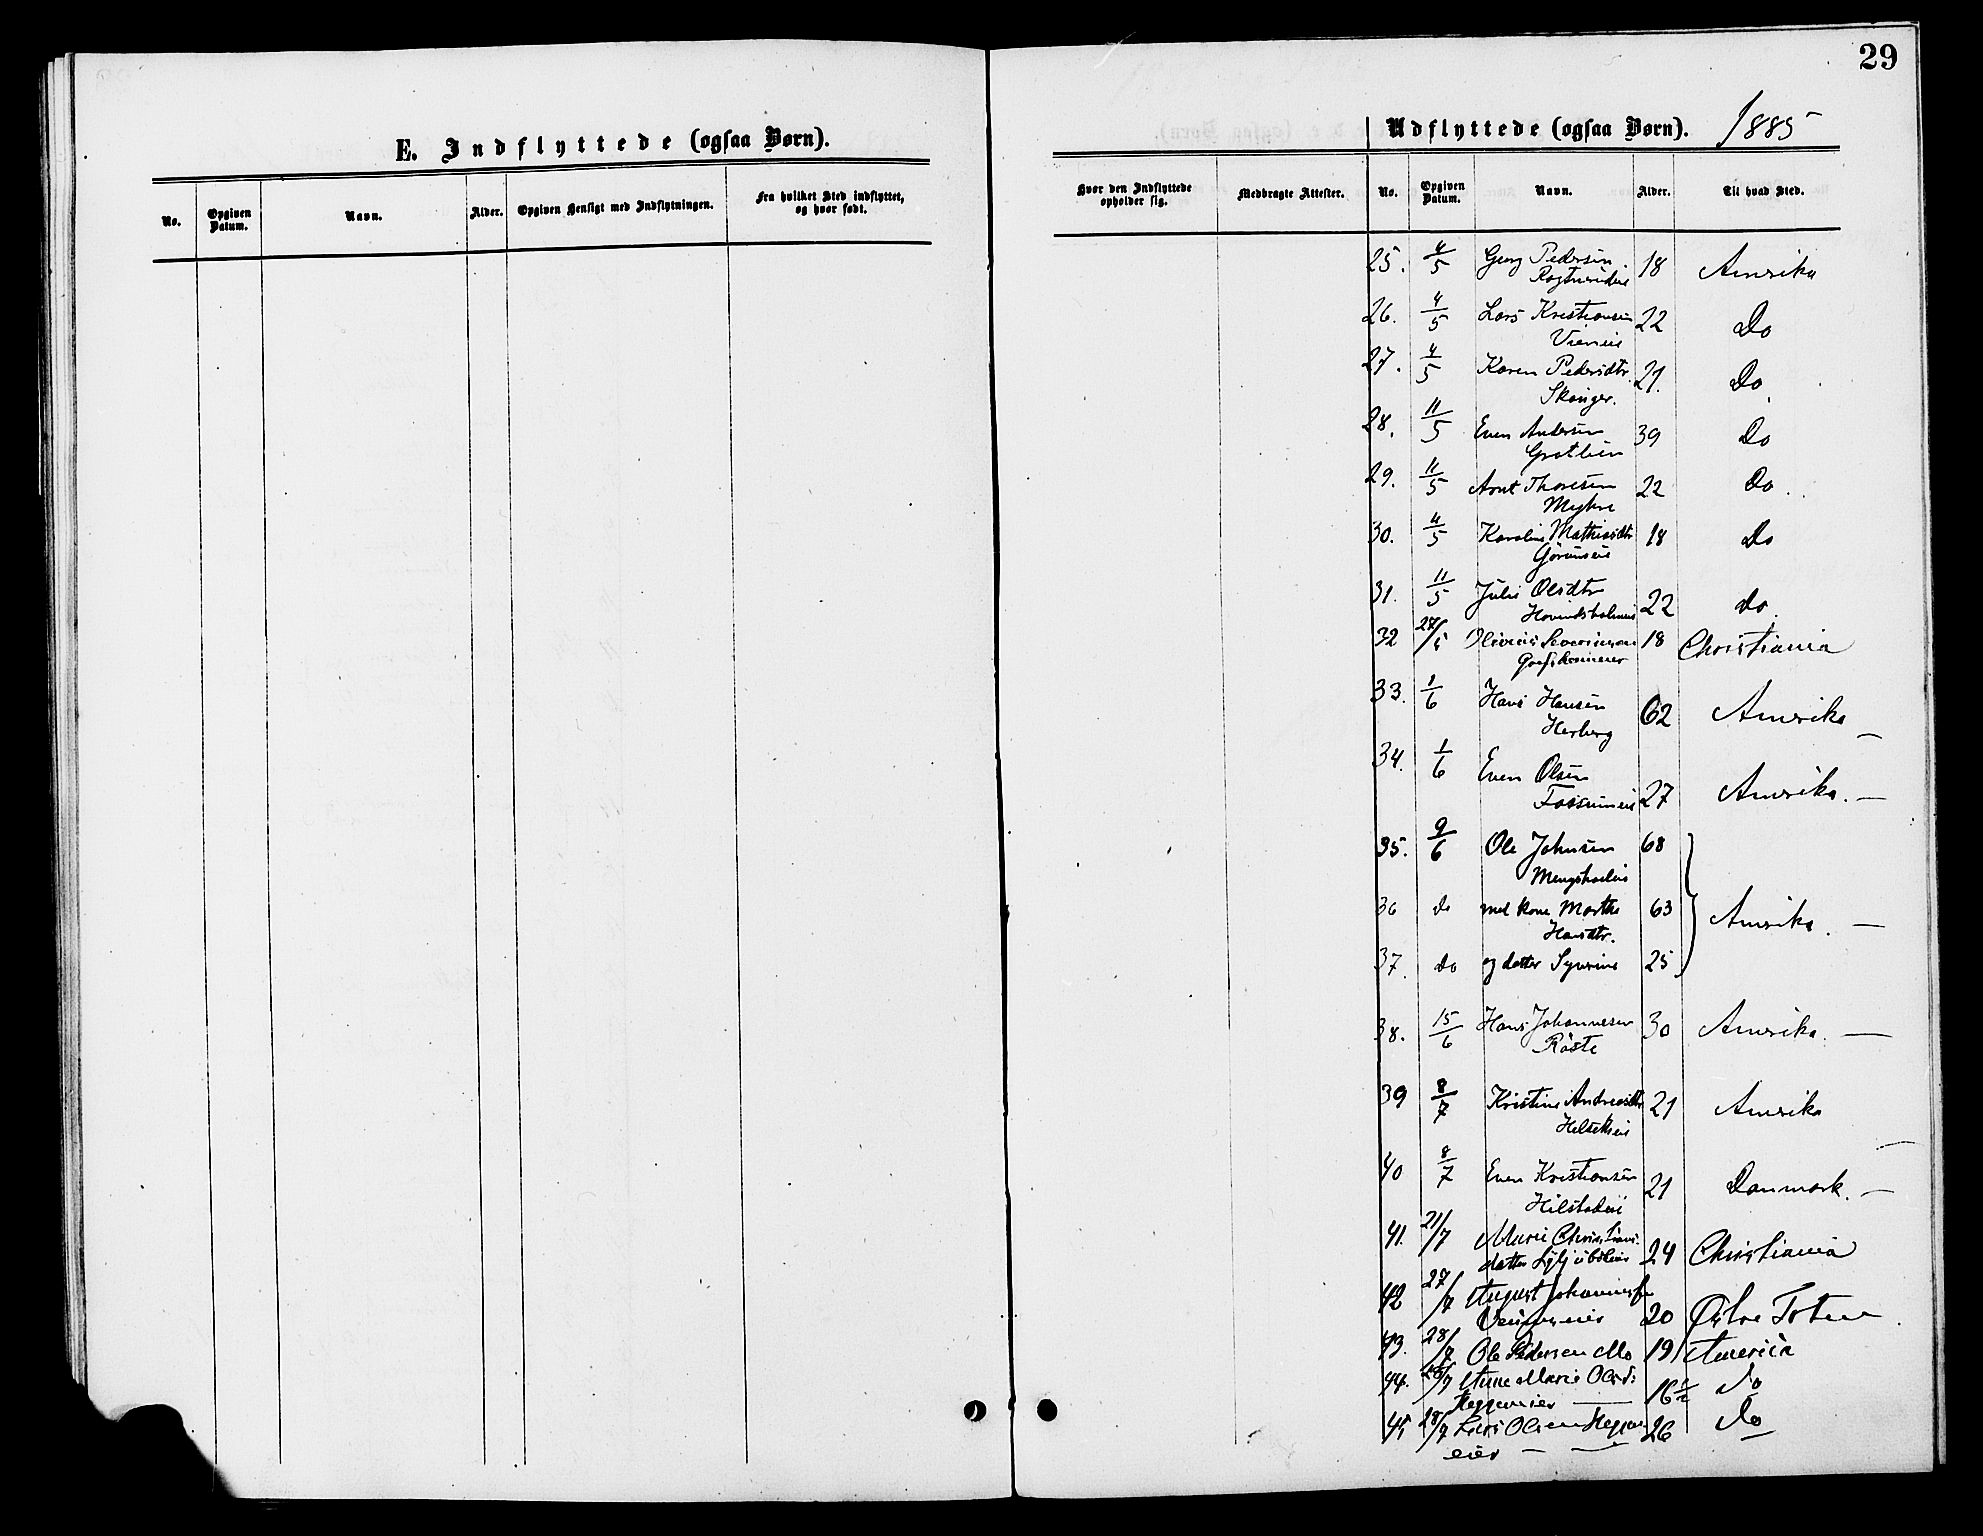 29
E. Indflyttede (ogsaa Børn).
No.
Opgiven Datum.
Navn.
Alder.
Opgiven Hensigt med Indflytningen.
Fra hvilket Sted indflyttet, og hvor født.
Udflyttede (ogsaa Børn). 1885
Hvor den Indflyttede opholder sig.
Medbragte Attester.
No.
Opgiven Datum.
Navn.
Alder.
Til hvad Sted.
25. 4/5 Georg Pedersen 18 Amerika
26. 4/5 Lars Kristiansen 22 Do
Vieneie
27. 4/5 Karen Pedersdtr 21. Do
Skanger.
28. 11/5 Even Andersen 39 Do
29. 11/5 Arnt Thoresen 22 Do
Myhre
30. 11/5 Karoline Mathisdtr 18 Do
31. 11/5 Julie Olsdtr 22 do
32 27/5 Severinsen 18 Christiania
33. 1/6 Hans Hansen 62 Amerika
Herberg
34. 1/6 Even Olsen 27 Amerika. —
Fossumeie
35. 9/6 Ole Johnsen 68
36 do med kone Marthe 63 Amerika. —
Hansdtr.
37. do og datter Syverine 25
38. 15/6 Hans Johannesen 30 Amerika. —
Røste
39 8/7 Kristine Andreasdtr 21 Amerika
40 8/7 Even Kristiansen 21 Danmark. —
Hilstadeie
41. 21/7 Marie Christians-
datter 24 Christiania
42 27/7 August Johannesen
20 Østre Toten
43. 28/7 Ole Pedersen Mo 19 America
44. 28/7 Anne Marie Olsd: 16½ Do
Heggeneier
45 28/7 Lars Olsen Heggen- 26 Do
eier